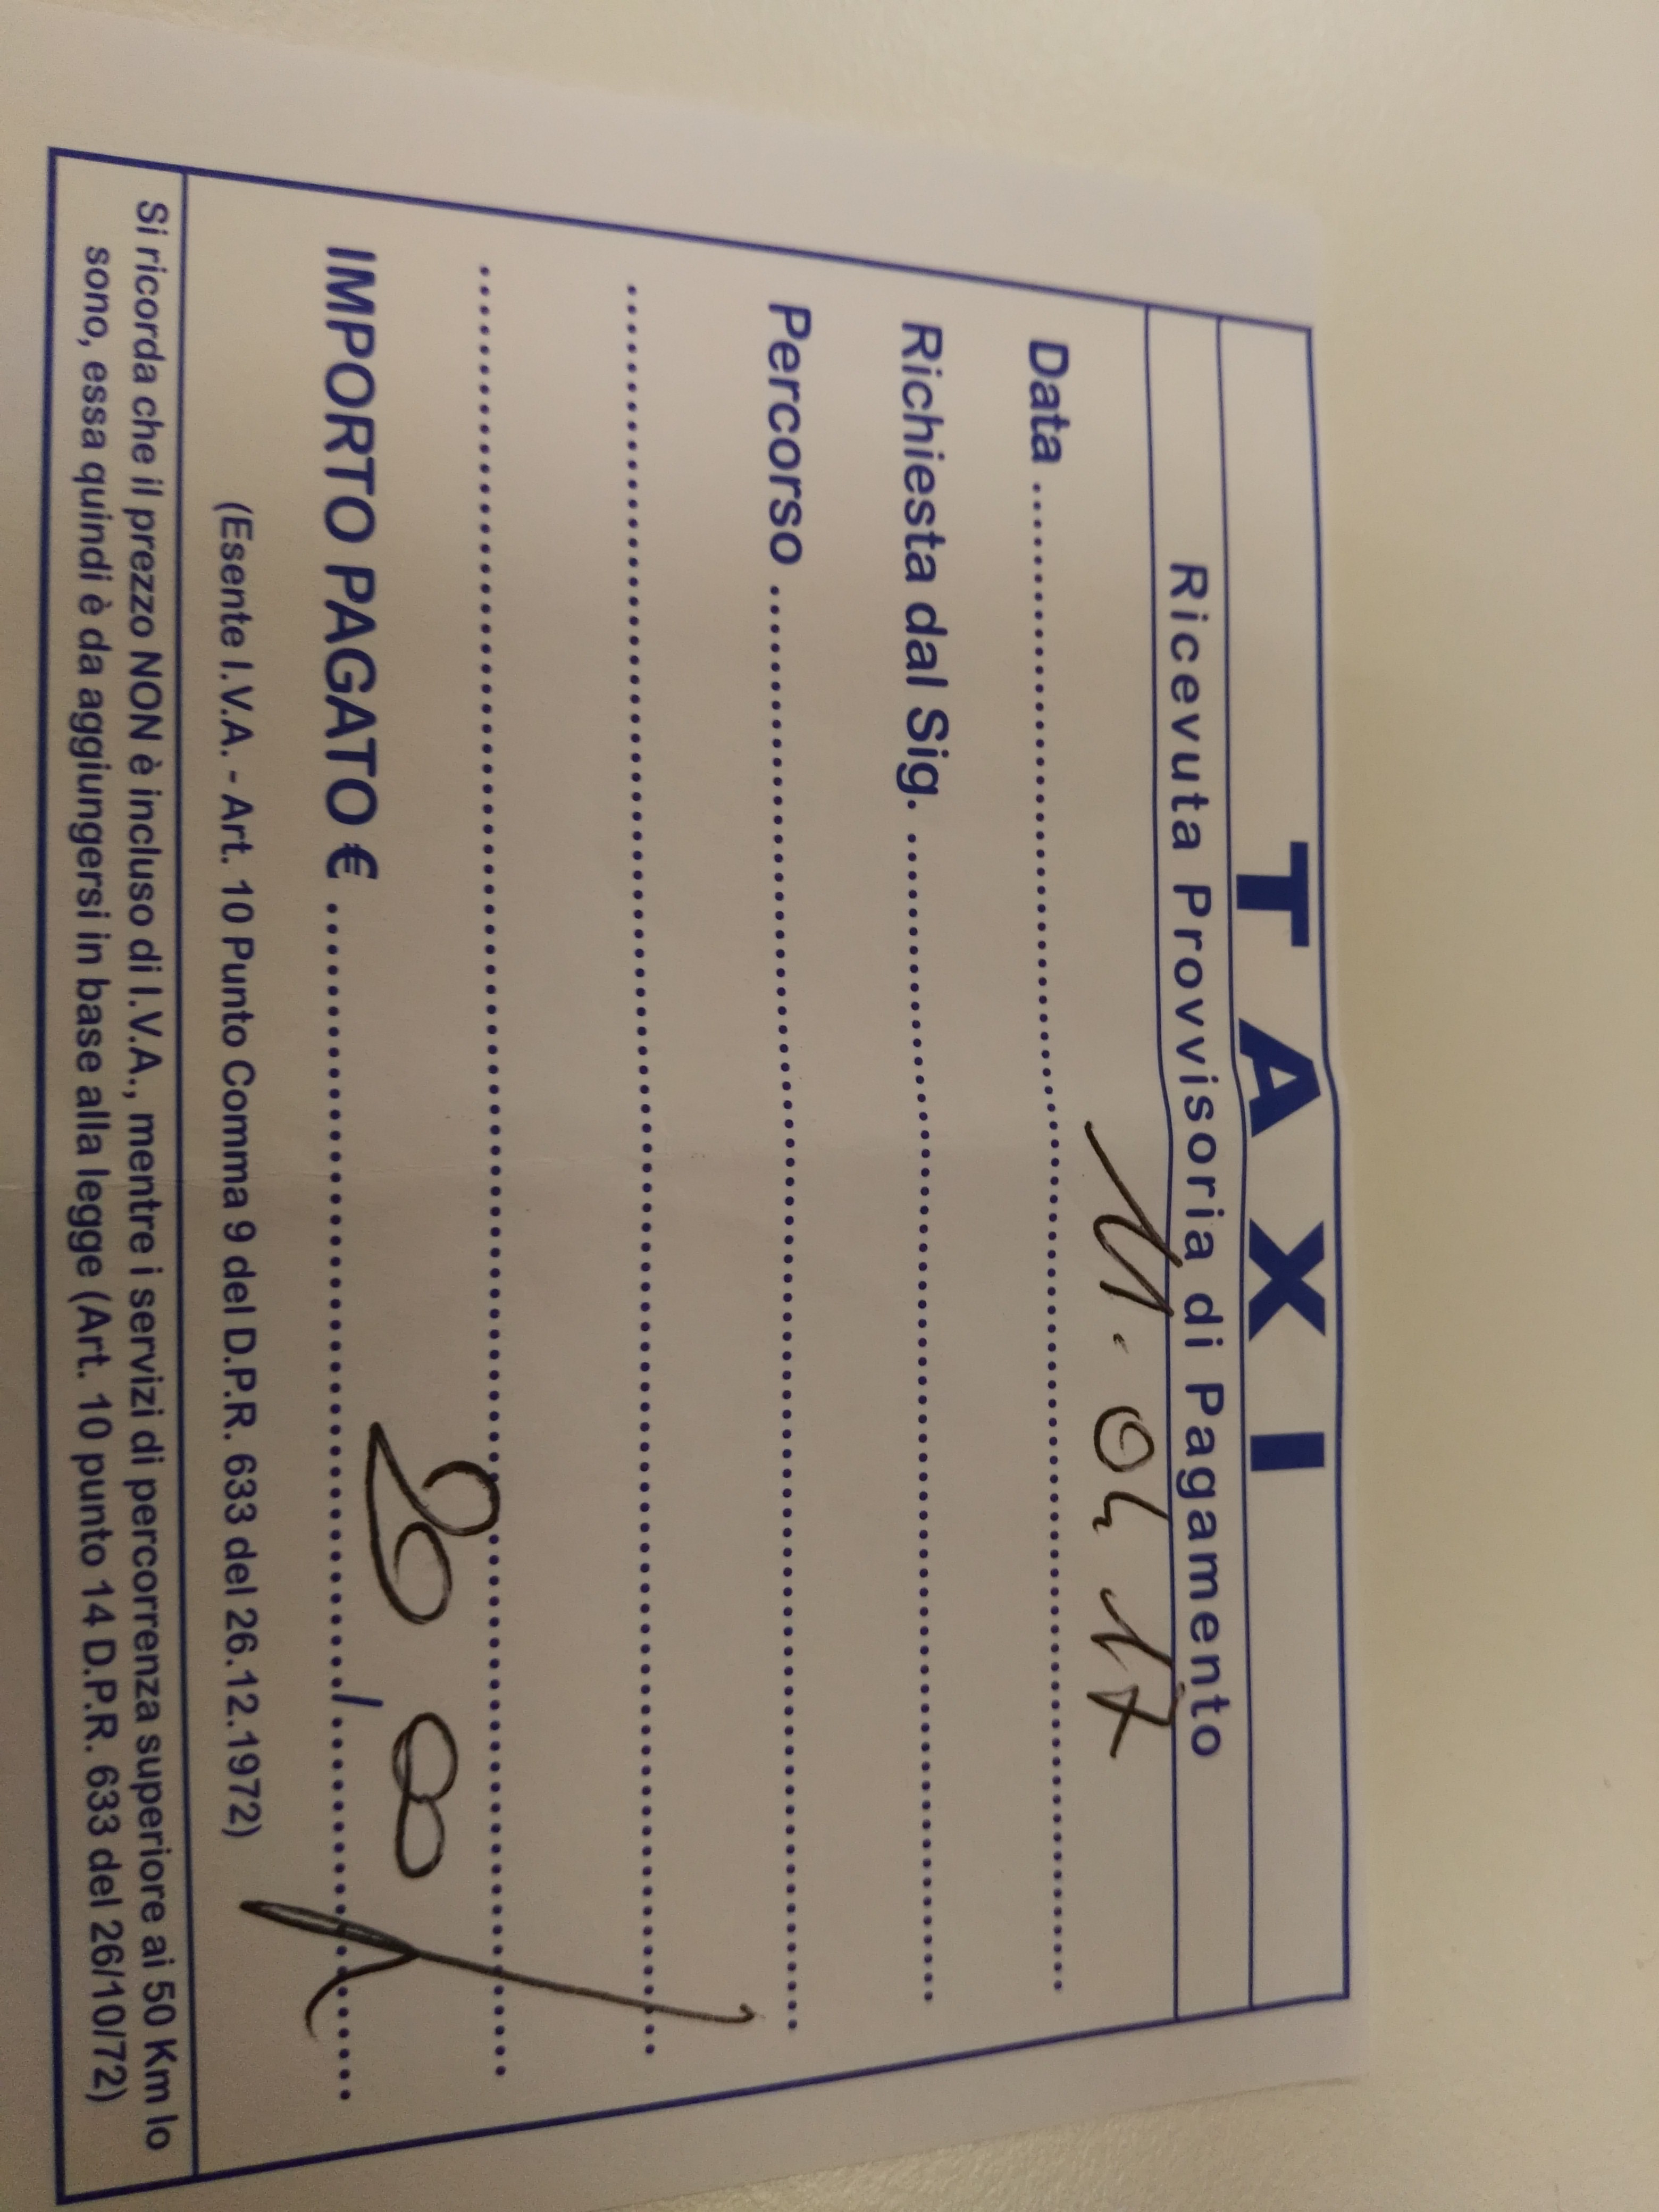 TAXI
Ricevuta Provvisoria di Pagamento
Data ........ 11.04.17
Richiesta dal Sig. ........
Percorso ........
........
........
IMPORTO PAGATO € ........ 20/00
(Esente I.V.A. - Art. 10 Punto Comma 9 del D.P.R. 633 del 26.12.1972)
Si ricorda che il prezzo NON è incluso di I.V.A., mentre i servizi di percorrenza superiore ai 50 Km lo
sono, essa quindi è da aggiungersi in base alla legge (Art. 10 punto 14 D.P.R. 633 del 26/10/72)